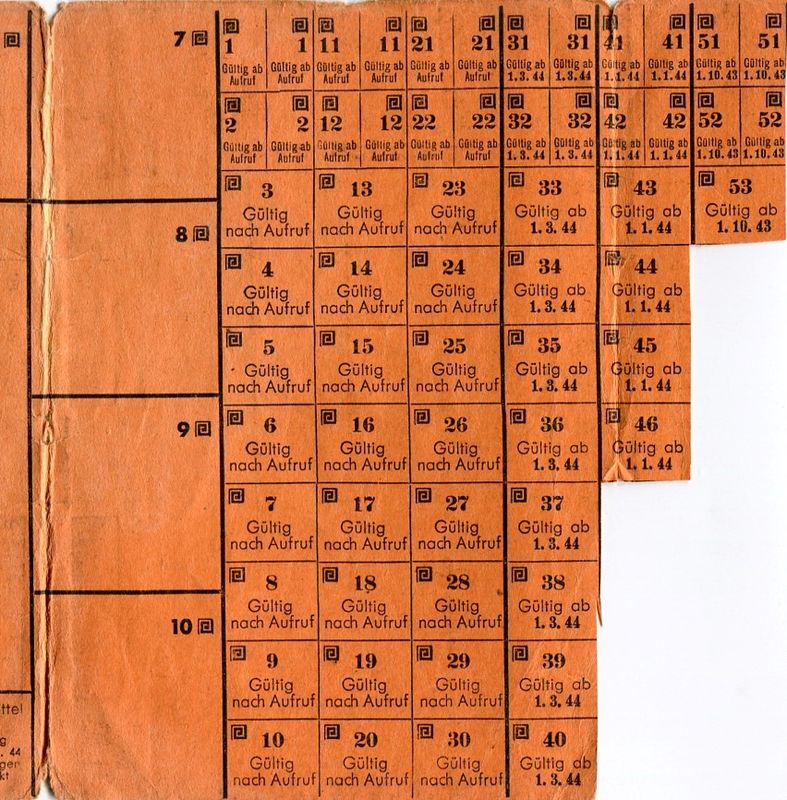 7
8
9
10
1 1 11 11 21 21 31 31 41 41 51 51
Gültig ab Gültig ab Gültig ab Gültig ab Gültig ab Gültig ab Gültig ab Gültig ab Gültig ab Gültig ab Gültig ab Gültig ab
Aufruf Aufruf Aufruf Aufruf Aufruf Aufruf 1.3.44 1.3.44 1.1.44 1.1.44 1.10.43 1.10.43
2 2 12 12 22 22 32 32 42 42 52 52
Gültig ab Gültig ab Gültig ab Gültig ab Gültig ab Gültig ab Gültig ab Gültig ab Gültig ab Gültig ab Gültig ab Gültig ab
Aufruf Aufruf Aufruf Aufruf Aufruf Aufruf 1.3.44 1.3.44 1.1.44 1.1.44 1.10.43 1.10.43
3 13 23 33 43 53
Gültig Gültig Gültig Gültig ab Gültig ab Gültig ab
nach Aufruf nach Aufruf nach Aufruf 1.3.44 1.1.44 1.10.43
4 14 24 34 44
Gültig Gültig Gültig Gültig ab Gültig ab
nach Aufruf nach Aufruf nach Aufruf 1.3.44 1.1.44
5 15 25 35 45
Gültig Gültig Gültig Gültig ab Gültig ab
nach Aufruf nach Aufruf nach Aufruf 1.3.44 1.1.44
6 16 26 36 46
Gültig Gültig Gültig Gültig ab Gültig ab
nach Aufruf nach Aufruf nach Aufruf 1.3.44 1.1.44
7 17 27 37
Gültig Gültig Gültig Gültig ab
nach Aufruf nach Aufruf nach Aufruf 1.3.44
8 18 28 38
Gültig Gültig Gültig Gültig ab
nach Aufruf nach Aufruf nach Aufruf 1.3.44
9 19 29 39
Gültig Gültig Gültig Gültig ab
nach Aufruf nach Aufruf nach Aufruf 1.3.44
10 20 30 40
Gültig Gültig Gültig Gültig ab
nach Aufruf nach Aufruf nach Aufruf 1.3.44
ttel
g
. 44
ger
kt